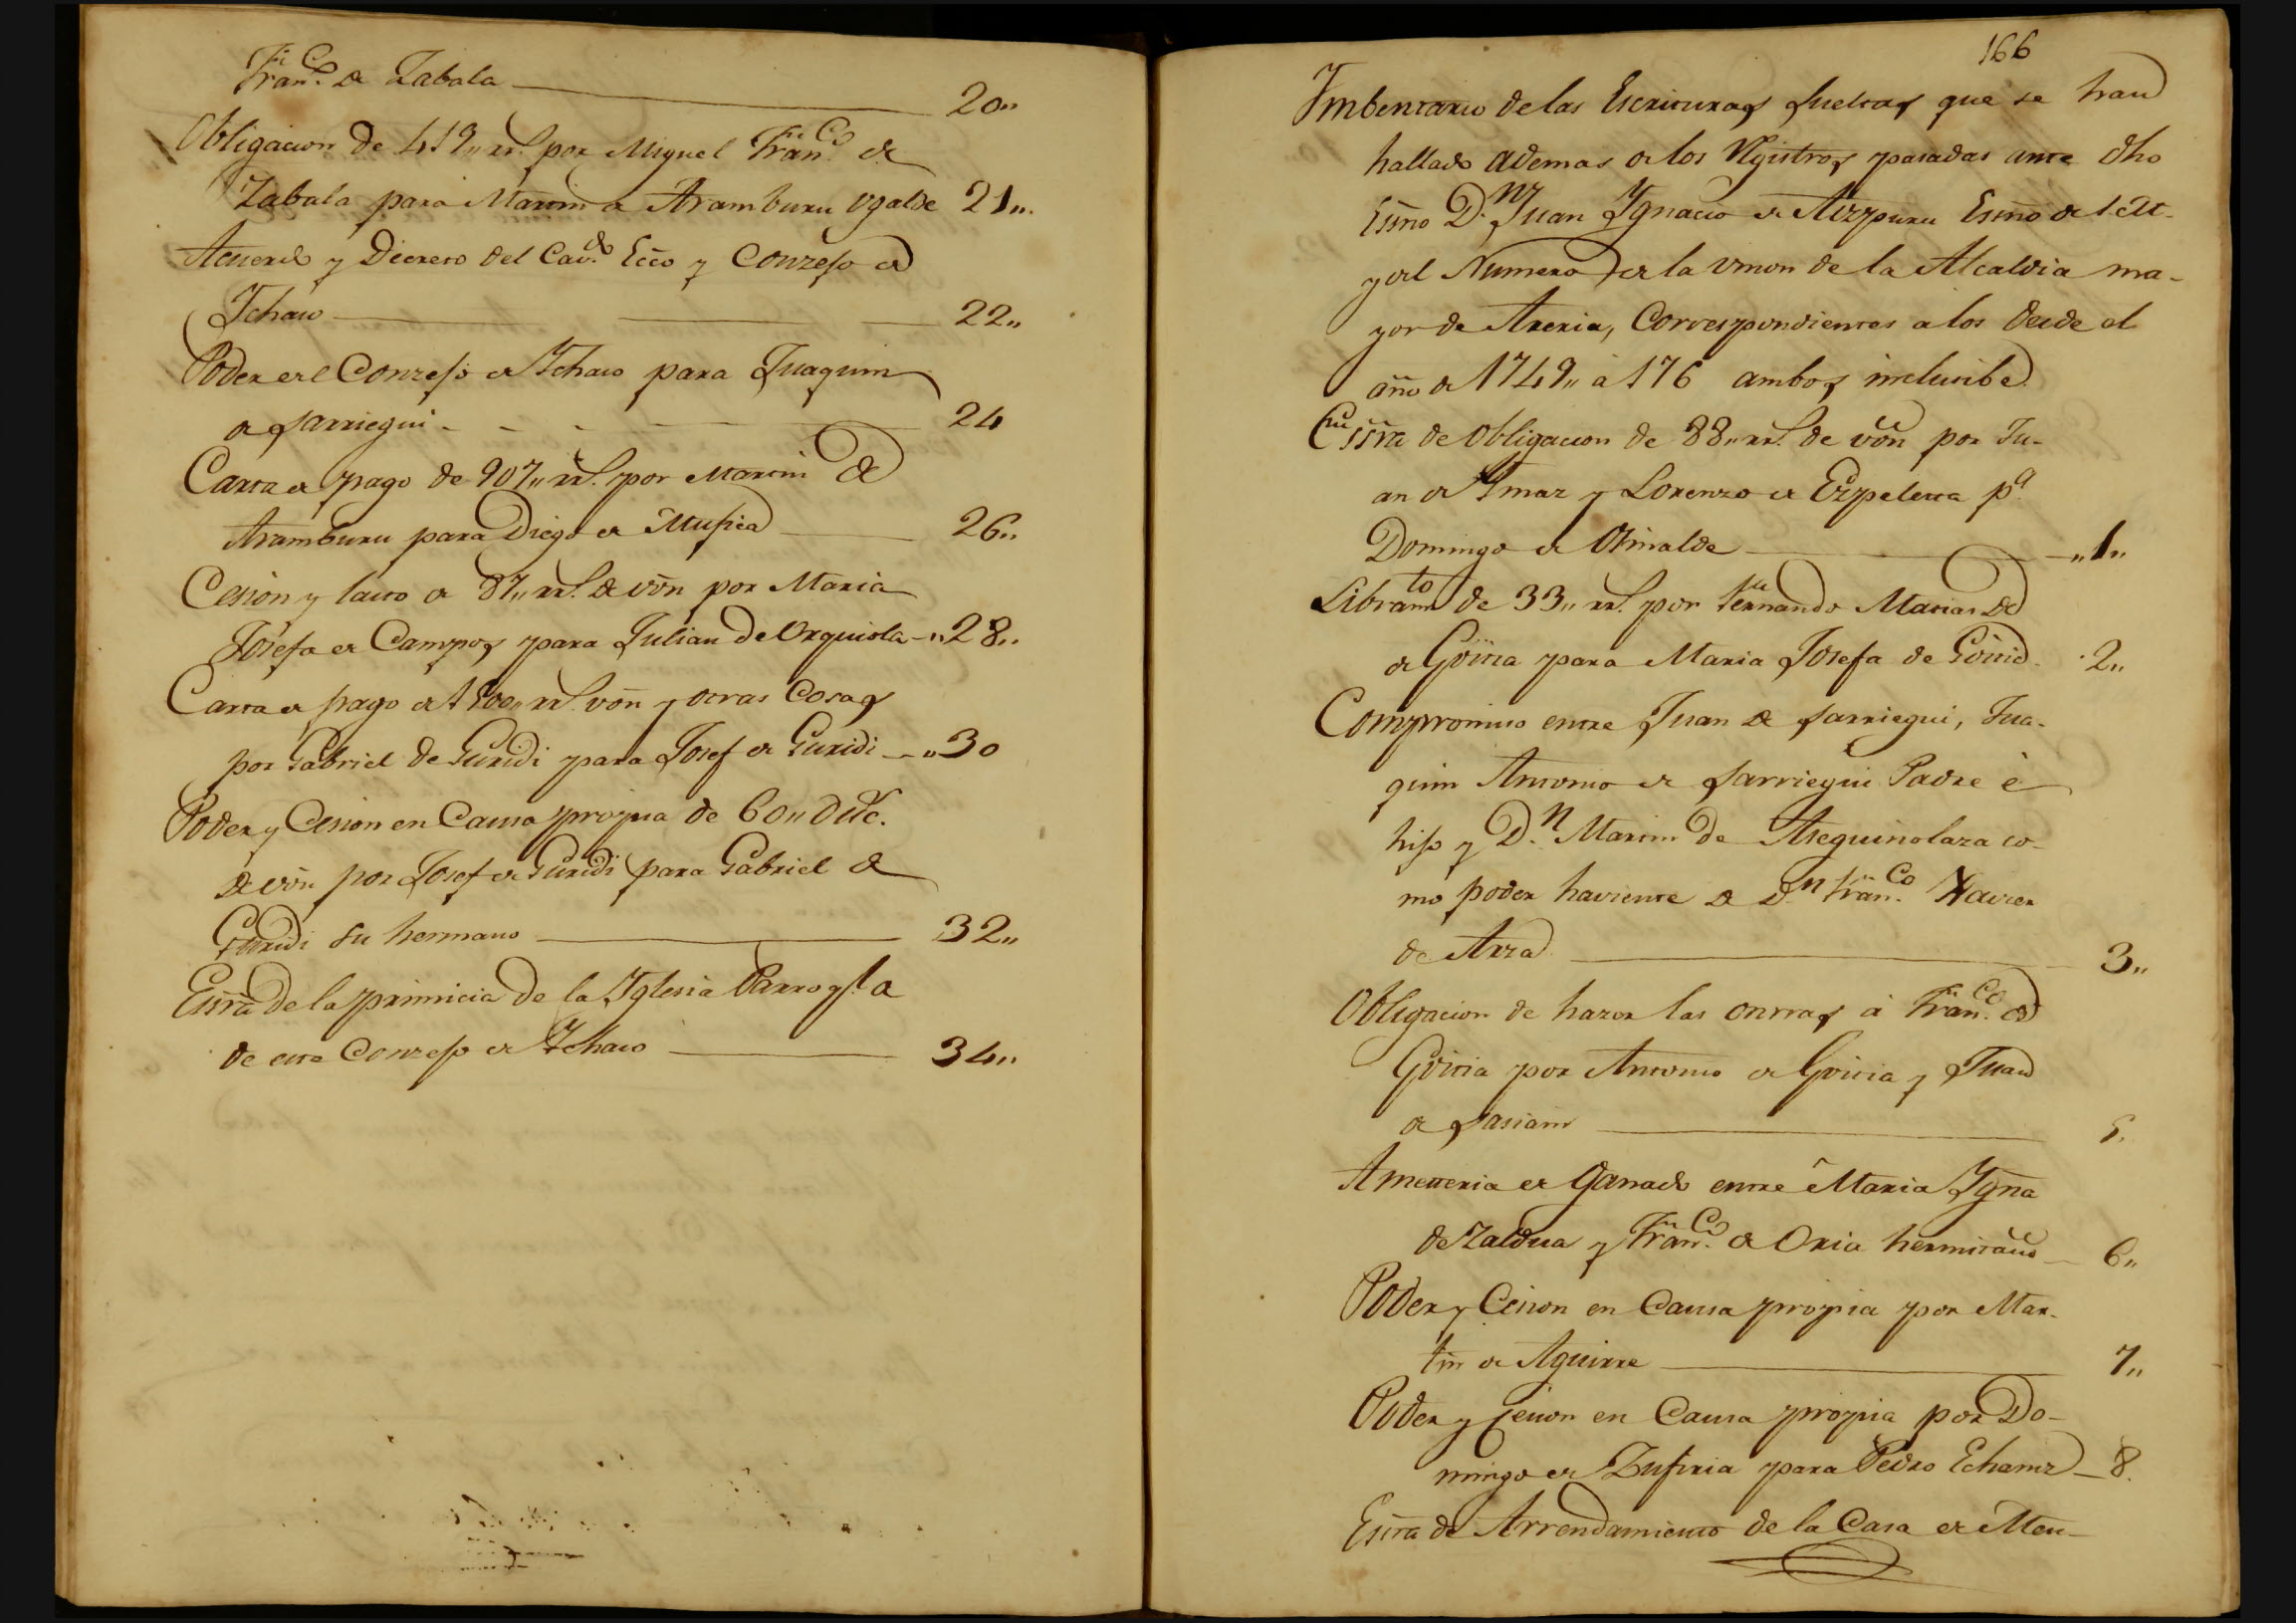 Fran.co de Zabala 20,,
Obligacion de 419,, rr.s por Miguel Fran.co de
Zabala para Martin de Aramburu Ugalde 21,,
Acuerdo y Decreto del Cav.do Ecco y Conzejo de
Ychaso 22,,
Poder del Conzejo de Ychaso para Juaquin
de Sarriegui 24
Carta de pago de 907,, rr.s por Martin de
Aramburu para Diego de Mujica 26,,
Cesion y lasto de 87,, rr.s de von por Maria
Josefa de Campos para Julian de Urquiola ,,28,,
Carta de pago de 1500,, rr.s von y otras Cosas
por Gabriel de Guridi para Josef de Guridi ,,30
Poder y Cesion en Causa propia de 60,, Duc.
de von por Josef de Guridi para Gabriel de
Guridi su hermano 32,,
Essra de la primicia de la Yglesia Parroq.l a
de este Conzejo de Ychaso 34,,
166
Ymbentario de las Escrituras sueltas que se han
hallado ademas de los Registros pasadas ante dho
Essno D.n Juan Ygnacio de Aizpuru Essno de
y del Numero de la Union de la Alcaldia ma-
yor de Areria, Correspondientes a los desde el
año de 1749,, a 176 ambos inclusibe
Essra de Obligacion de 88,, rr.s de von por Ju-
an de Ymaz y Lorenzo de Ezpeleta p.a
Domingo de Otinalde ,,1,,
Libram.to de 33,, rr.s por Fernando Matias de
de Goitia para Maria Josefa de Goitia 2,,
Compromiso entre Juan de Sarriegui, Jua-
quin Antonio de Sarriegui Padre è
hijo y D.n Martin de Aseguinolaza co-
mo poder haviente de D.n Fran.co Xavier
de Arza 3,,
Obligacion de hazer las onrras à Fran.co de
Goitia por Antonio de Goitia y Juan
de Sasiain 5.
Ametteria de Ganado entre Maria Ygna
de Zaldua y Fran.co de Oria hermitaño 6,,
Poder y Cesion en Causa propia por Mar-
tin de Aguirre 7,,
Poder y Cesion en Causa propia por Do-
mingo de Zufiria para Pedro Echaniz 8.
Essra de Arrendamiento de la Casa de Men-